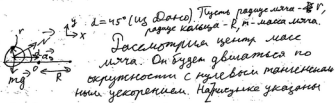 α = 45° (из Дано). Пусть радиус мяча - r,
радиус кольца - R, m - масса мяча.
Рассмотрим центр масс
мяча. Он будет двигаться по
окружности с нулевым танген
ным ускорением. На рисунке указаны
y
x
r
N
α
O
mg
R